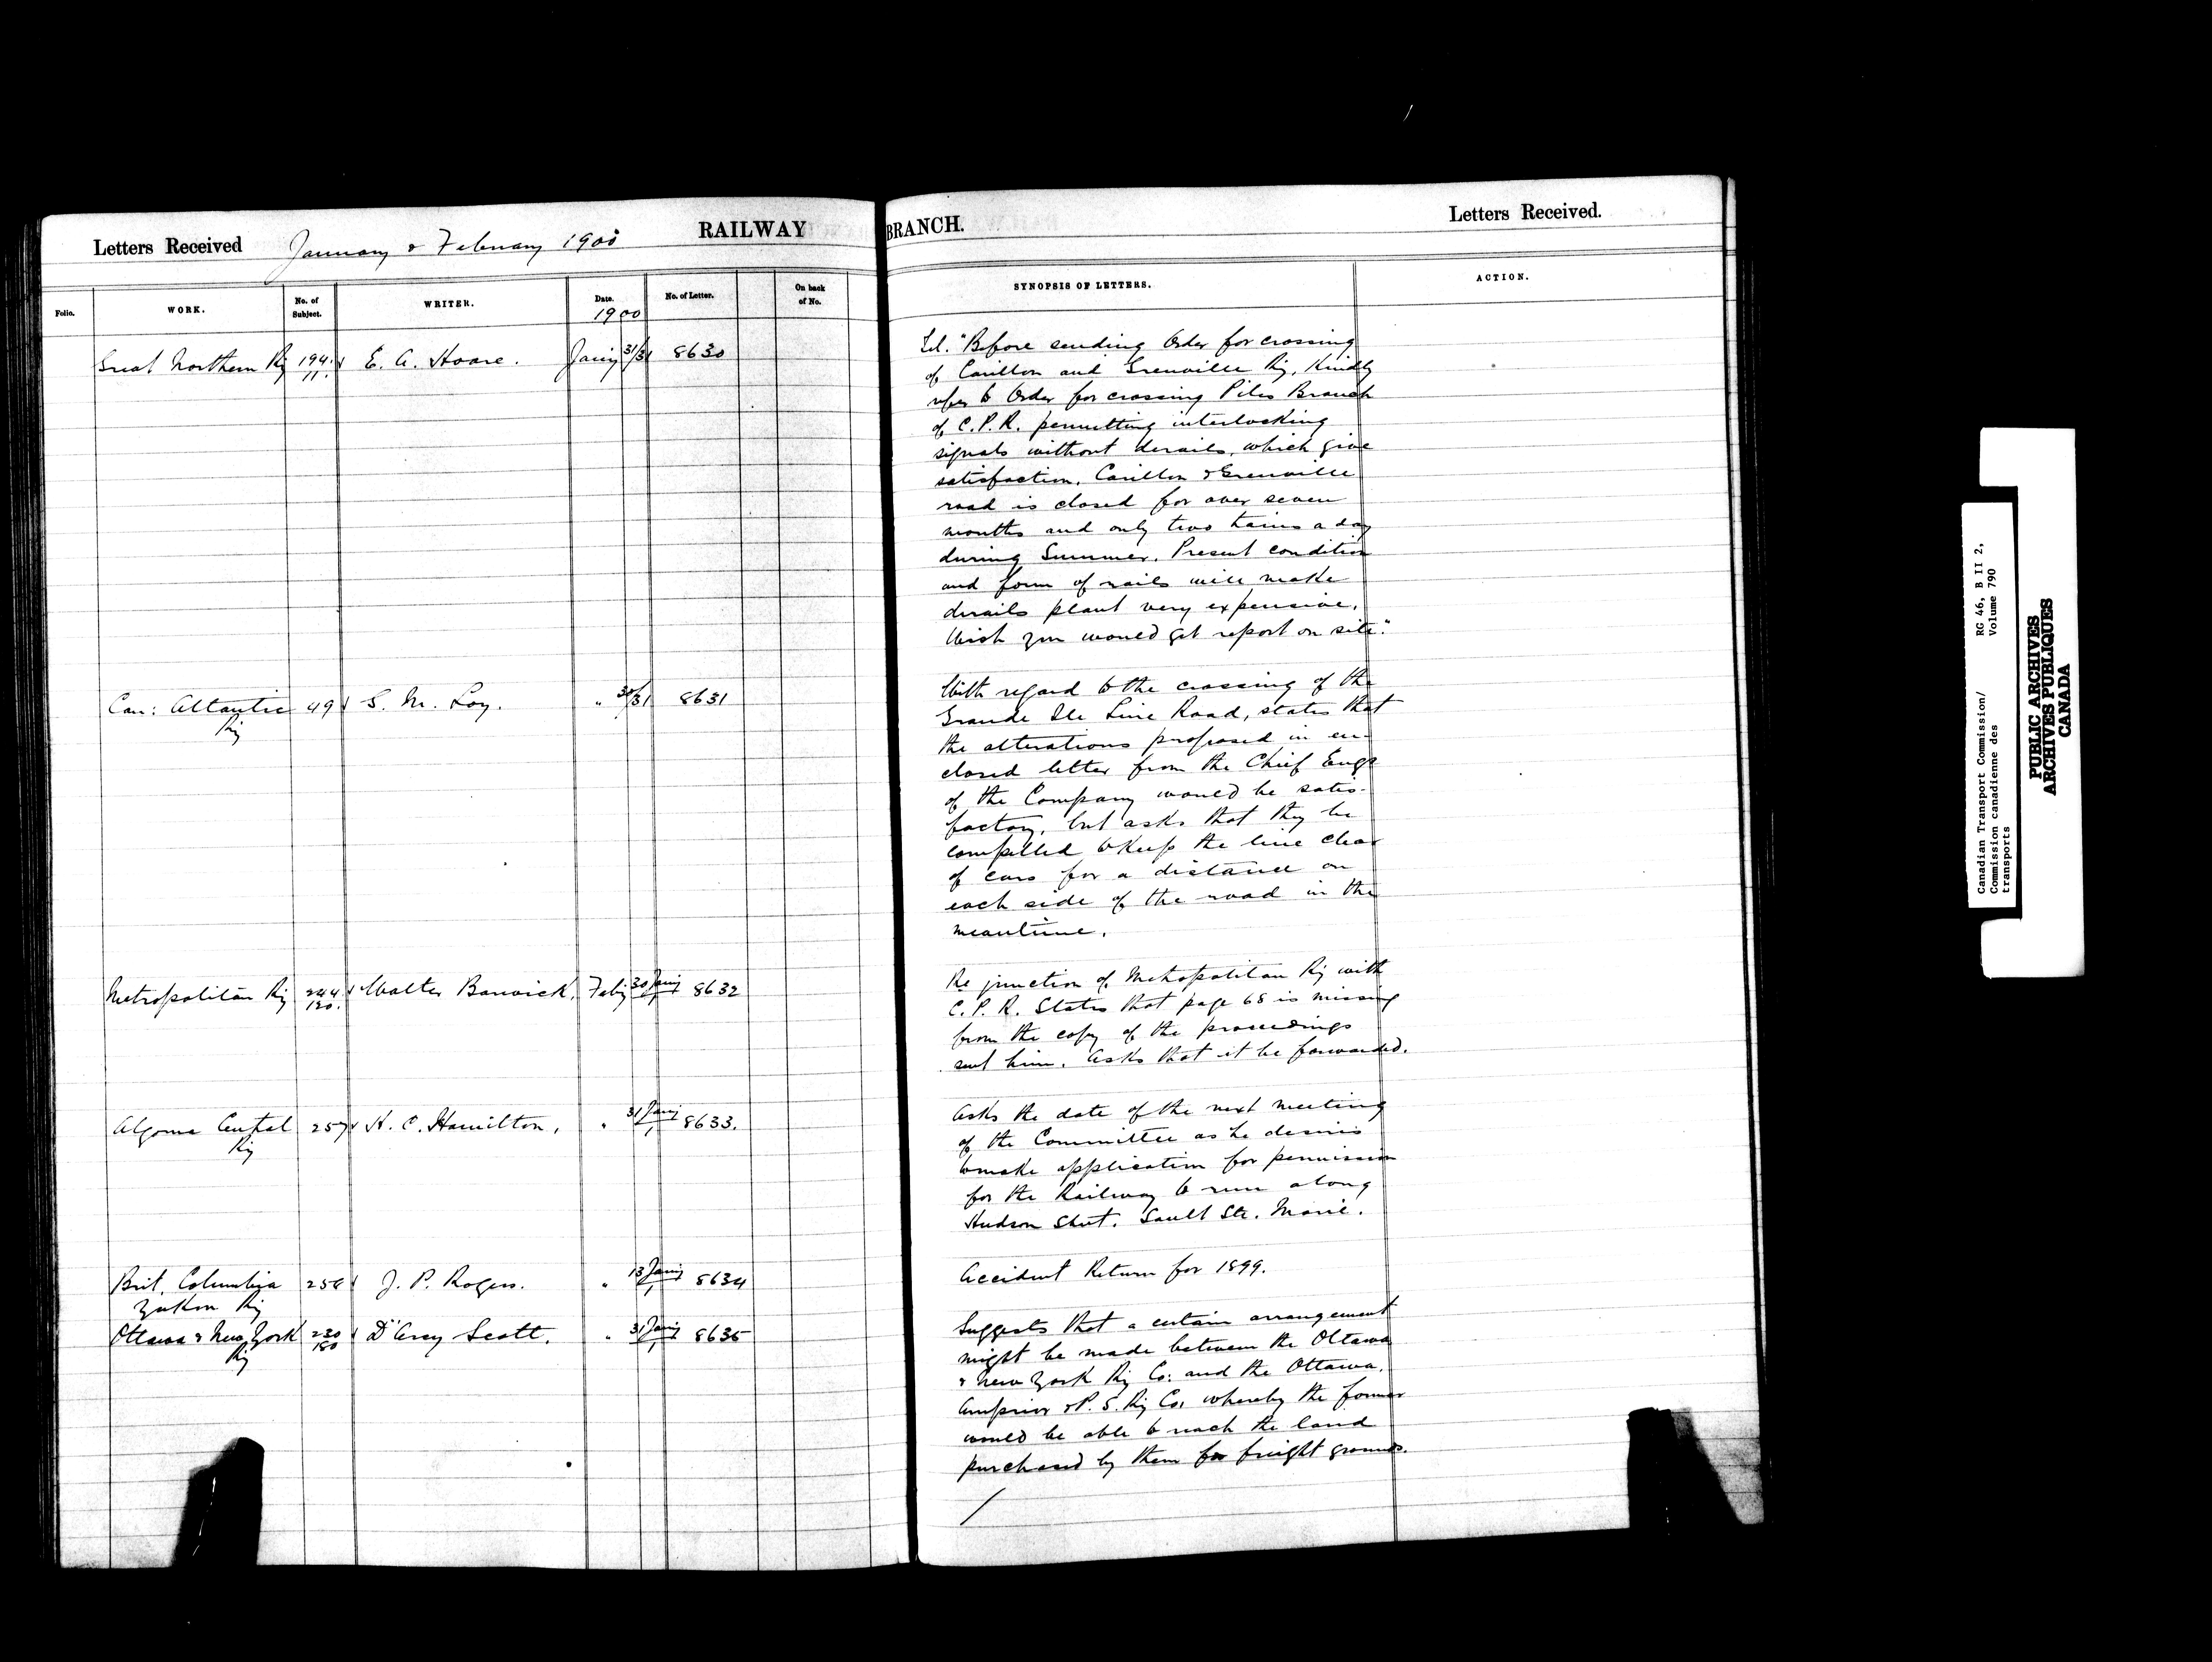 Letters Received January & February 1900 RAILWAY BRANCH. Letters Received.
Folio. WORK. No. of Subject. WRITER. Date. 1900 No. of Letter. On back of No. SYNOPSIS OF LETTERS. ACTION.
Great Northern Ry 194. 11. E. A. Hoare. Jany 31/31 8630
Tel. "Before sending Order for crossing
of Carillon and Grenville Ry, Kindly
refer to Order for crossing Piles Branch
of C.P.R. permitting interlocking
signals without derails, which give
satisfaction. Carillon & Grenville
road is closed for over seven
months and only two trains a day
during Summer. Present condition
and form of rails will make
derails plant very expensive.
Wish you would get report on site."
Can: Atlantic Ry 49 S. M. Loy. " 30/31 8631
With regard to the crossing of the
Grande Ile Line Road, states that
the alterations proposed in en-
closed letter from the Chief Engr
of the Company would be satis-
factory, but asks that they be
compelled to Keep the line clear
of cars for a distance on
each side of the road in the
meantime.
Metropolitan Ry 244. 120. Walter Barwick. Feby 30 Jany/1 8632
Re junction of Metropolitan Ry with
C. P. R. States that page 68 is missing
from the copy of the proceedings
sent him. Asks that it be forwarded.
Algoma Central Ry 257 H. C. Hamilton. " 31 Jany/1 8633.
Asks the date of the next meeting
of the Committee as he desires
to make application for permission
for the Railway to run along
Hudson Street. Sault Ste. Marie.
Brit. Columbia Yukon Ry J. P. Rogers. " 13 Jany/1 8634
Accident Return for 1899.
Ottawa & New York Ry 230 180 D'Arcy Scott. " 31 Jany/1 8635
Suggests that a certain arrangement
might be made between the Ottawa
& New York Ry Co: and the Ottawa,
Arnprior & P. S. Ry Co. whereby the former
would be able to reach the land
purchased by them for freight grounds.
Canadian Transport Commission/
Commission canadienne des
transports
RG 46, B II 2,
Volume 790
PUBLIC ARCHIVES
ARCHIVES PUBLIQUES
CANADA